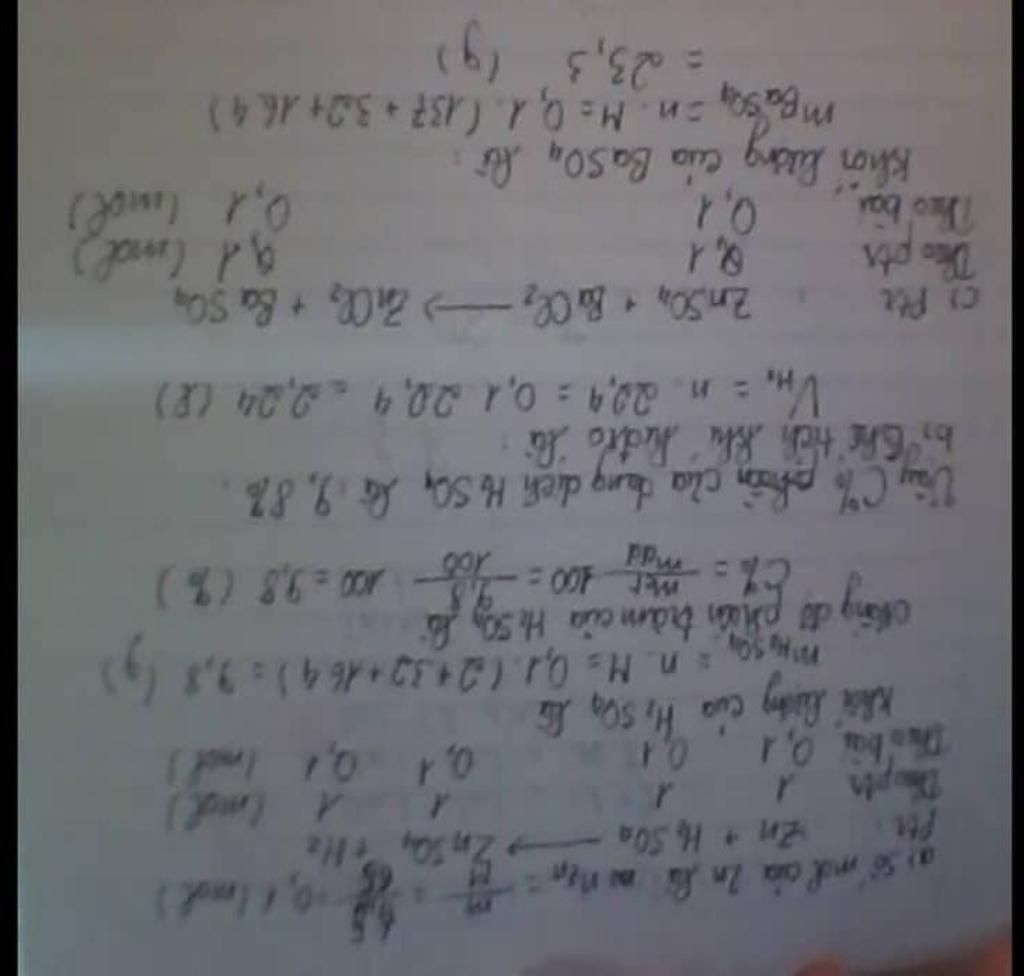 a) Số mol của Zn là nZn = m/M = 6,5/65 = 0,1 (mol)
Ptr: Zn + H₂SO₄ → ZnSO₄ + H₂
Theo ptr 1 1 1 1 (mol)
Theo bài 0,1 0,1 0,1 0,1 (mol)
Khối lượng của H₂SO₄ là
mH₂SO₄ = n.M = 0,1.(2+32+16.4) = 9,8 (g)
Nồng độ phần trăm của H₂SO₄ là
C% = mct/mdd . 100 = 9,8/100 . 100 = 9,8 (%)
Vậy C% phần của dung dịch H₂SO₄ là 9,8%.
b, Thể tích khí hidro là:
VH₂ = n. 22,4 = 0,1. 22,4 = 2,24 (l)
c) Ptr: ZnSO₄ + BaCl₂ → ZnCl₂ + BaSO₄
Theo ptr 0,1 0,1 (mol)
Theo bài 0,1 0,1 (mol)
Khối lượng của BaSO₄ là:
mBaSO₄ = n.M = 0,1.(137+32+16.4)
= 23,3 (g)